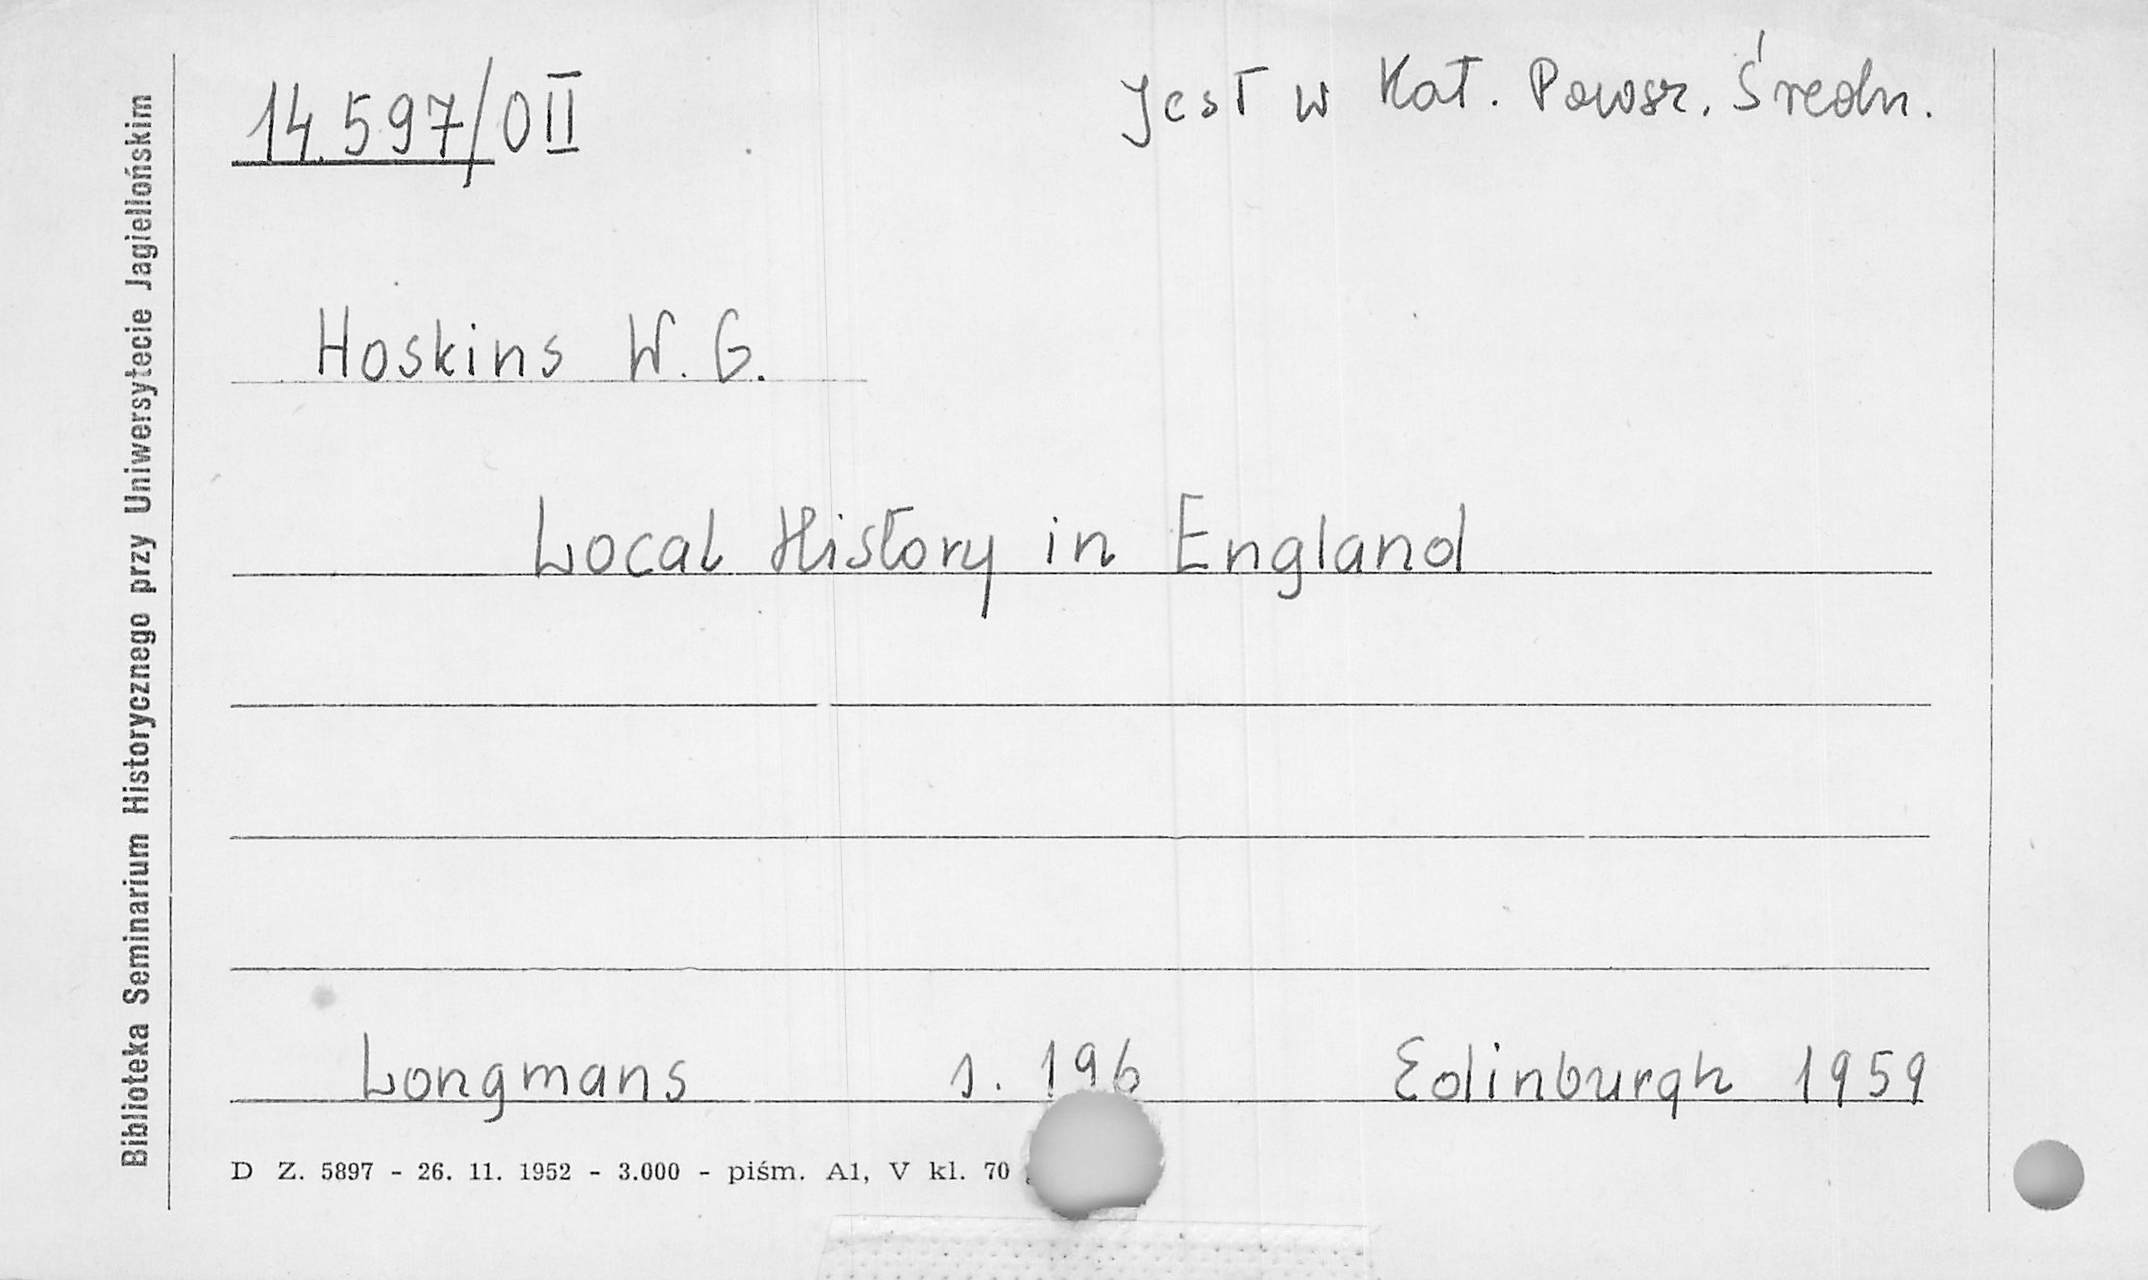 14.597/0II
Jest w Kat. Powsz. Średn.
Hoskins W. G.
Local History in England
Longmans s. 196 Edinburgh 1959
D Z. 5897 - 26. 11. 1952 - 3.000 - piśm. A1, V kl. 70
Biblioteka Seminarium Historycznego przy Uniwersytecie Jagiellońskim